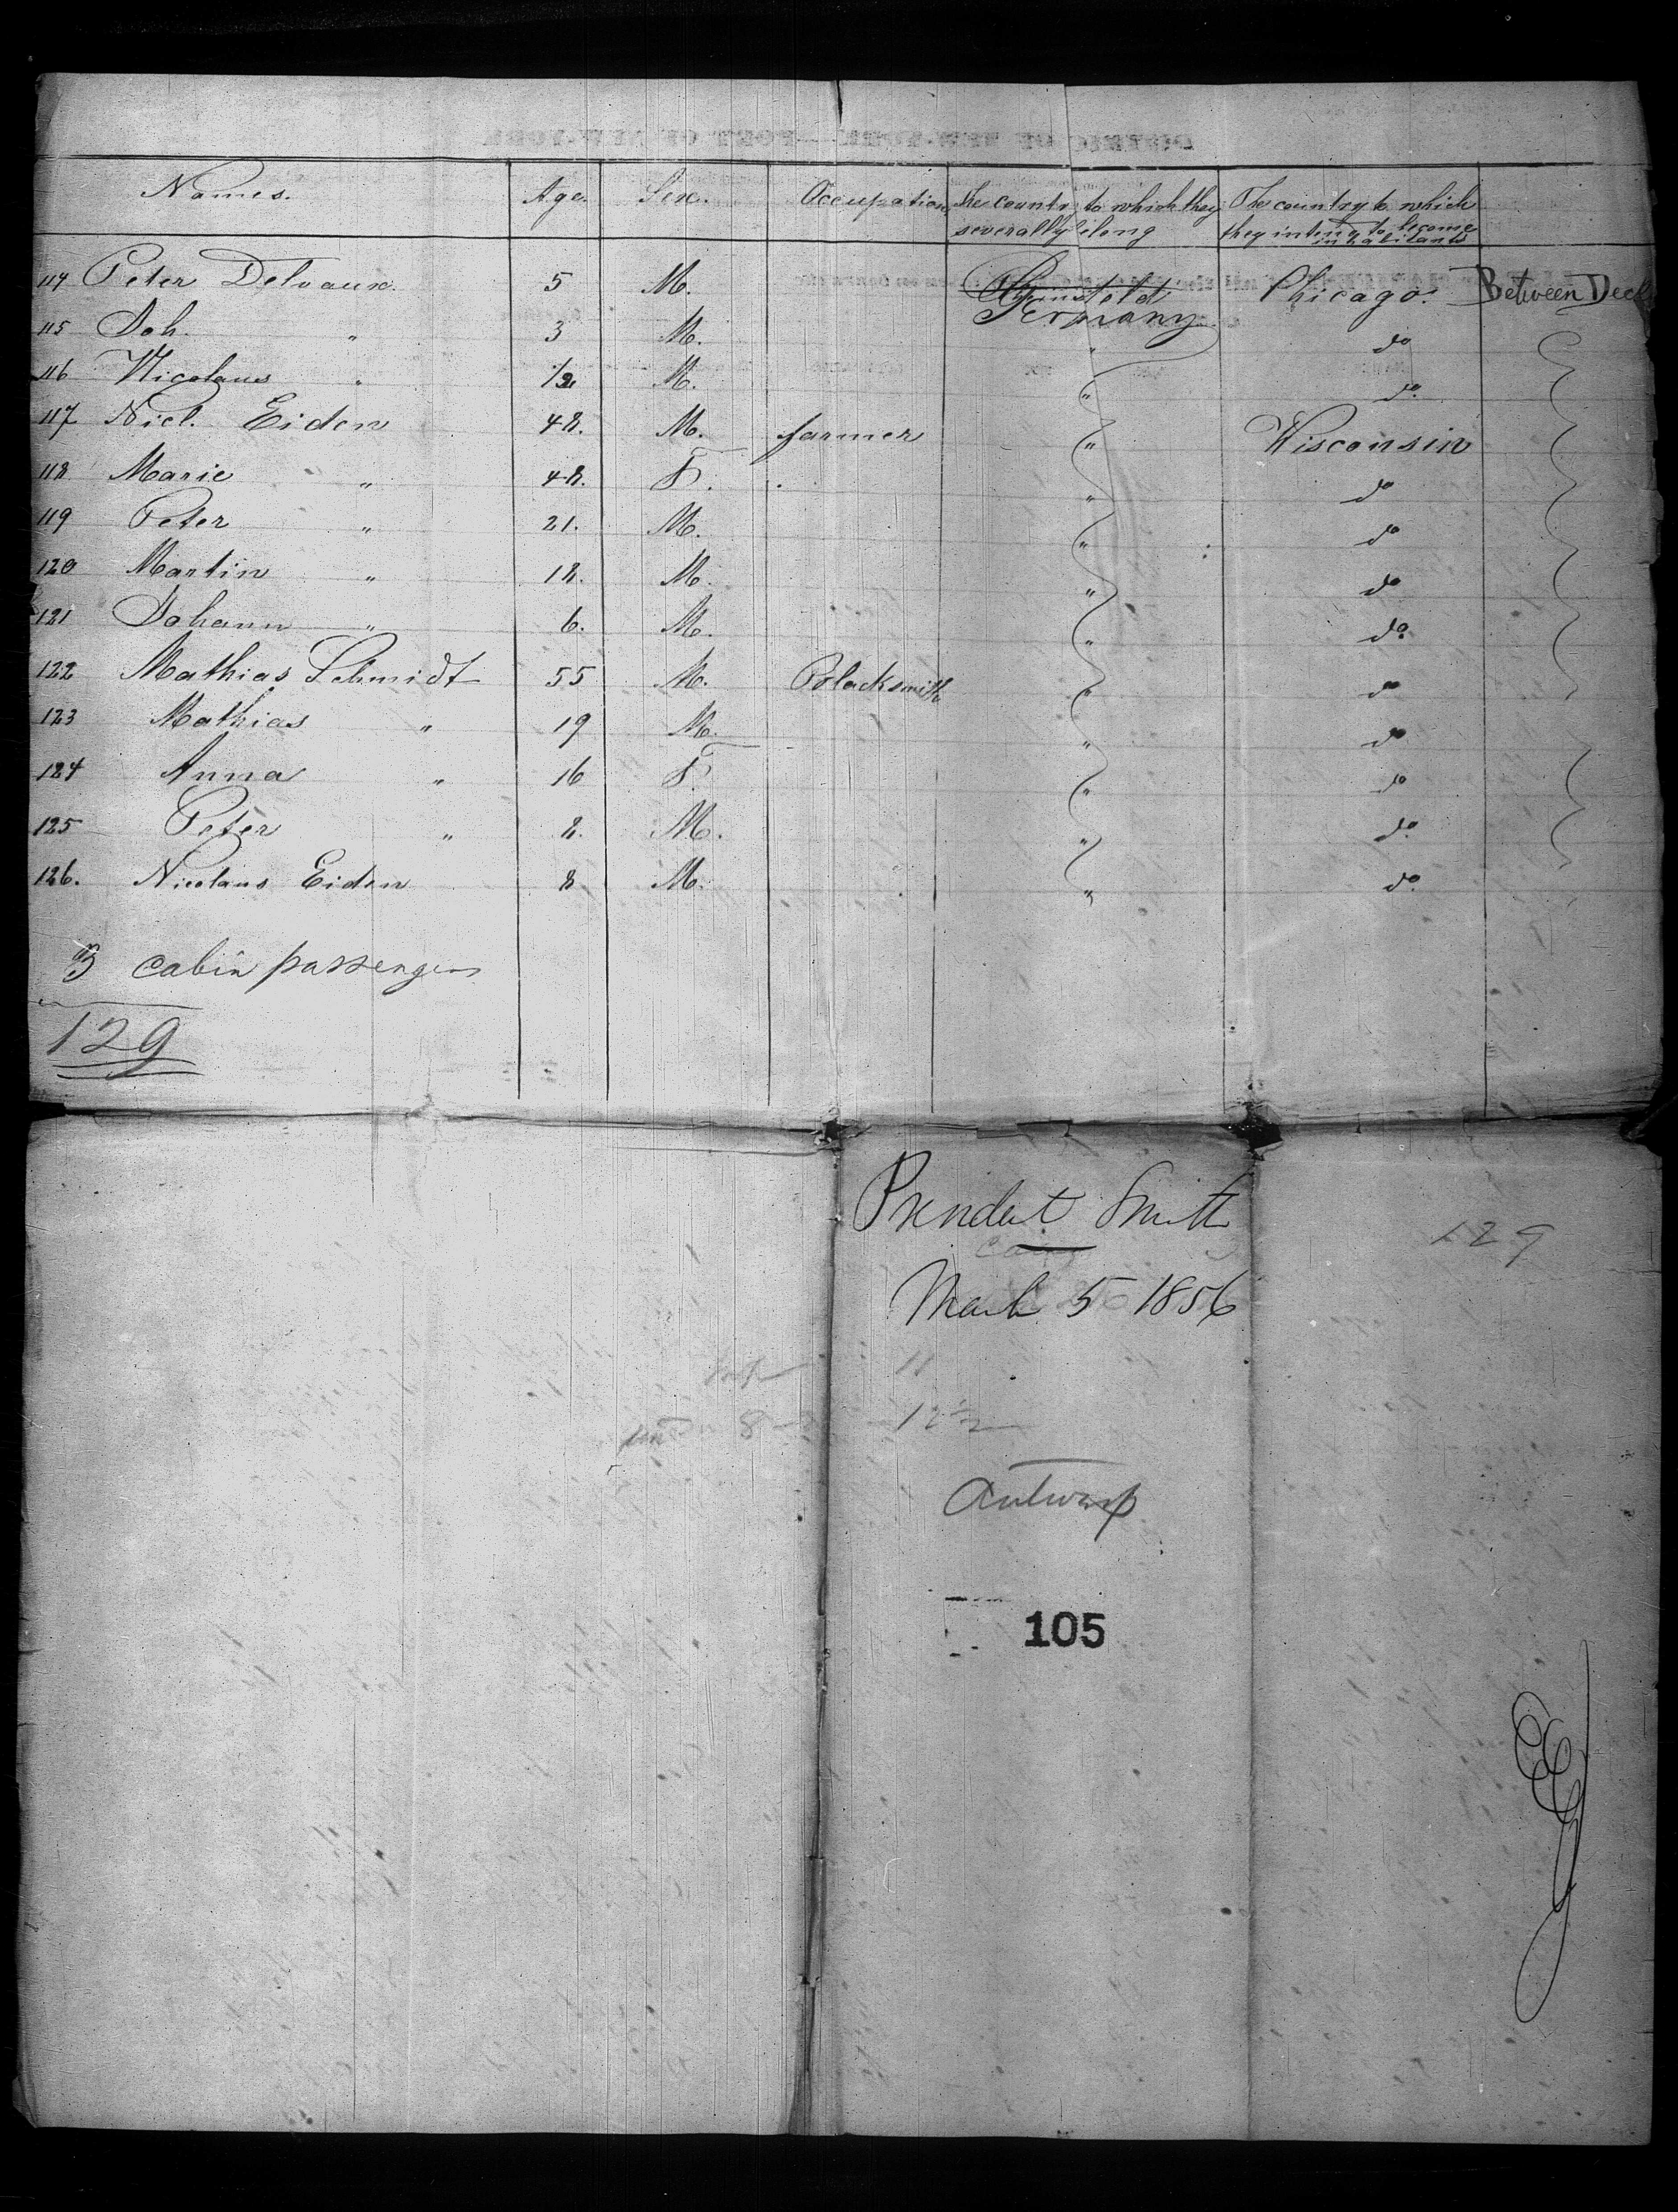 DISTRICT OF NEW-YORK—PORT OF NEW-YORK
Names. Age. Sex. Occupation The country to which they severally belong The country to which they intend to become inhabitants
114 Peter Delvaux 5 M. Germany Chicago. Between Deck
115 Joh. " 3 M. " do
116 Nicolaus " 1/2 M. " do.
117 Nicl. Eiden 48. M. farmer " Wisconsin
118 Marie " 48. F. " do
119 Peter " 21. M. " do
120 Martin " 18. M. " do
121 Johann " 6. M. " do.
122 Mathias Schmidt 55 M. Blacksmith " do
123 Mathias " 19 M. " do
124 Anna " 16 F. " do
125 Peter " 8. M. " do.
126. Nicolaus Eiden 8 M. " do.
3 cabin passengers
129
President Smith
129
March 5 1856
11
12 1/2
Antwerp
105